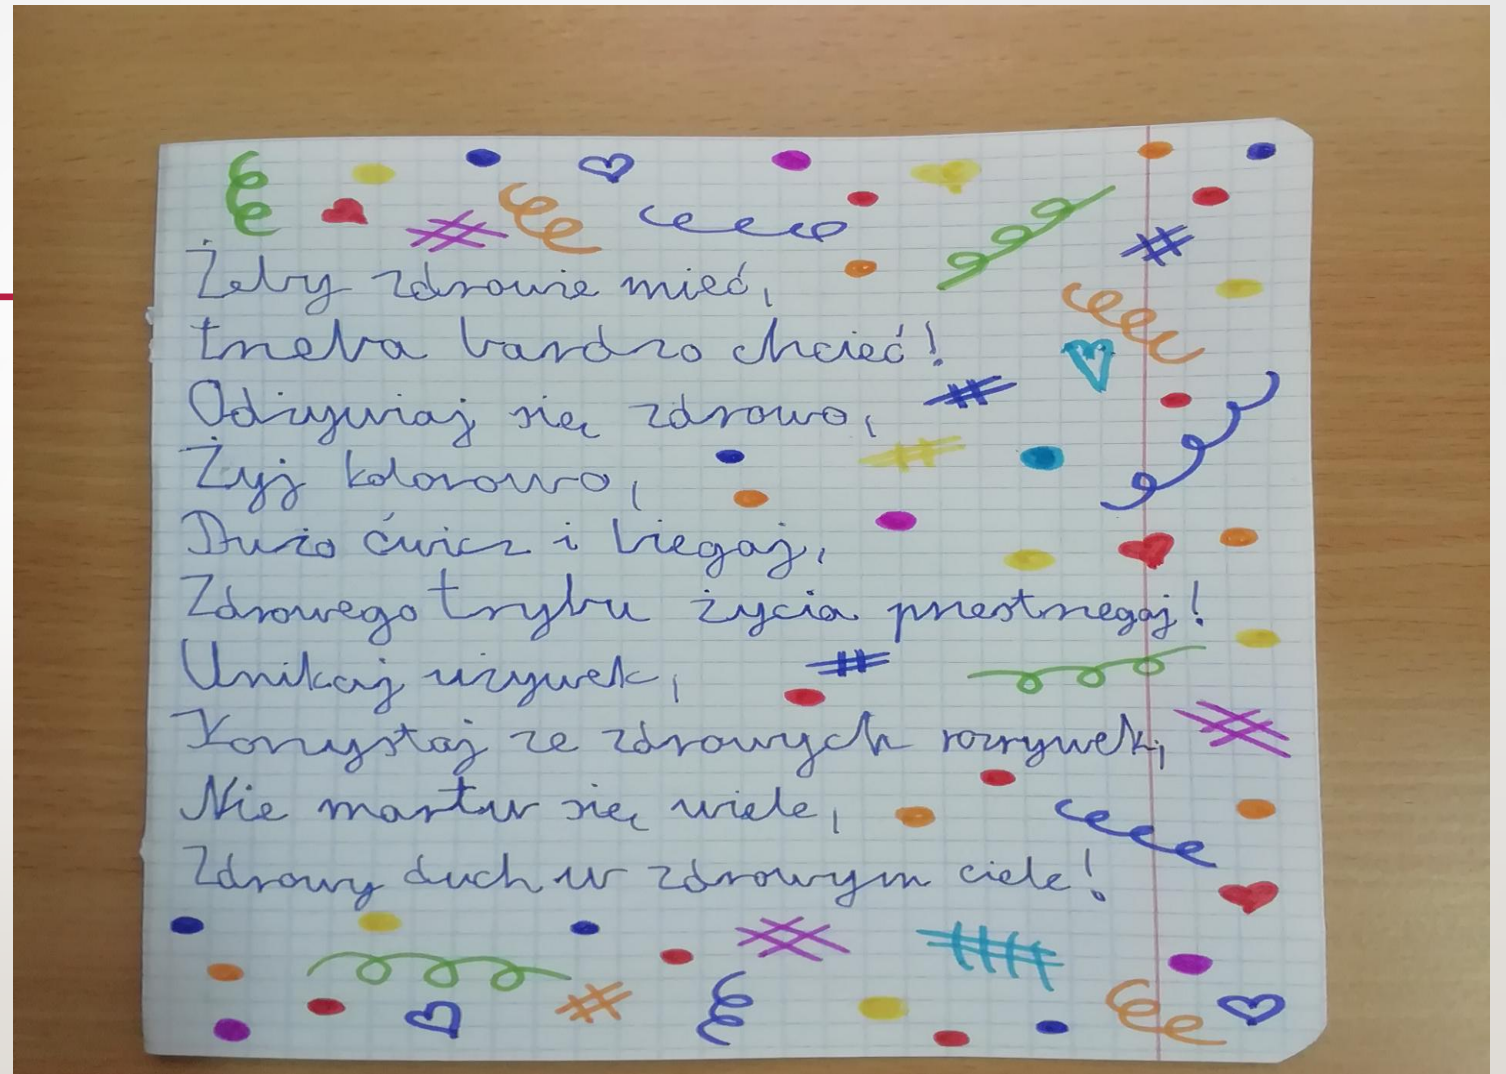 Żeby zdrowie mieć,
trzeba bardzo chcieć!
Odżywiaj się zdrowo,
Żyj kolorowo,
Dużo ćwicz i biegaj,
Zdrowego trybu życia przestrzegaj!
Unikaj używek,
Korzystaj ze zdrowych rozrywek,
Nie martw się wiele,
Zdrowy duch w zdrowym ciele!